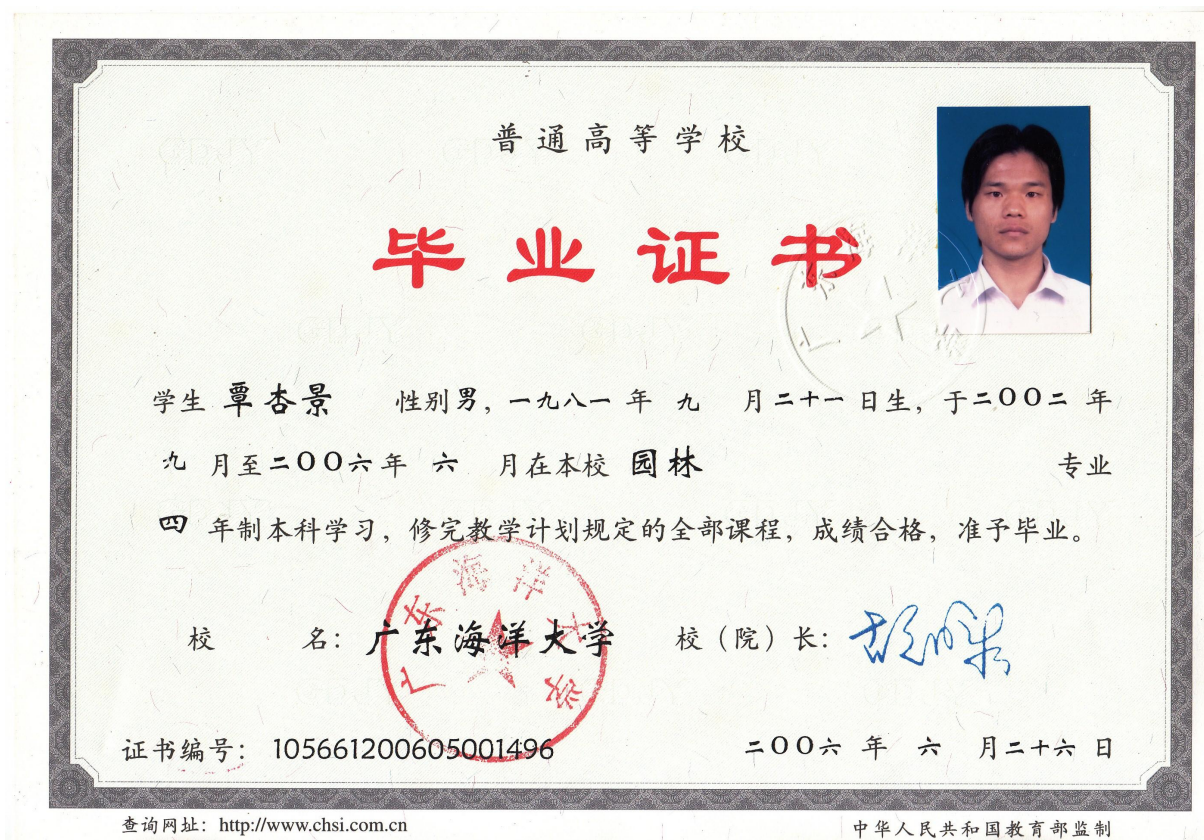 普通高等学校
毕业证书
学生 覃杏景 性别男，一九八一年 九 月二十一日生，于二〇〇二年
九 月至二〇〇六年 六 月在本校 园林 专业
四 年制本科学习，修完教学计划规定的全部课程，成绩合格，准予毕业。
校 名：广东海洋大学 校（院）长：
广东海洋大学
证书编号： 105661200605001496 二〇〇六年 六 月二十六日
查询网址：http://www.chsi.com.cn 中华人民共和国教育部监制